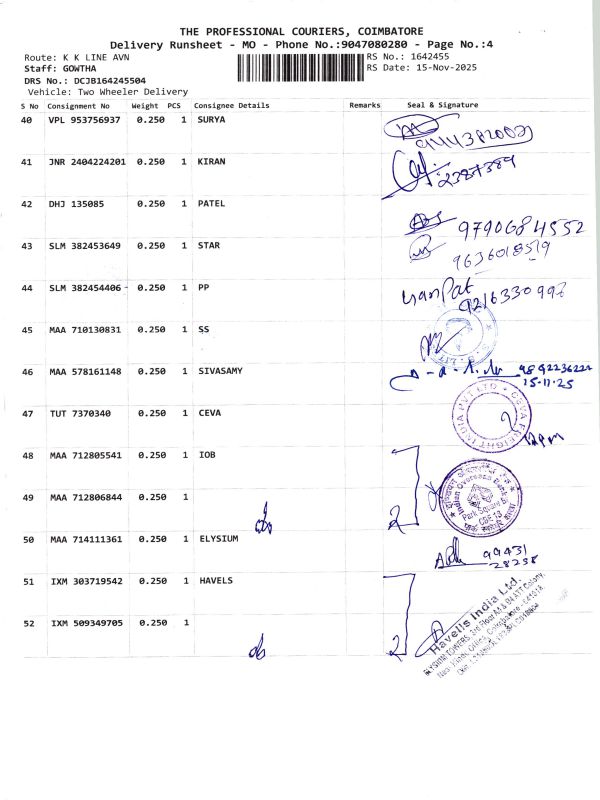 THE PROFESSIONAL COURIERS, COIMBATORE
Delivery Runsheet - MO - Phone No.:9047080280 - Page No.:4
Route: K K LINE AVN
RS No.: 1642455
Staff: GOWTHA
RS Date: 15-Nov-2025
DRS No.: DCJB164245504
Vehicle: Two Wheeler Delivery
S No Consignment No Weight PCS Consignee Details Remarks Seal & Signature
40 VPL 953756937 0.250 1 SURYA
41 JNR 2404224201 0.250 1 KIRAN
2387389
42 DHJ 135085 0.250 1 PATEL
9790684552
43 SLM 382453649 0.250 1 STAR
9636018519
44 SLM 382454406 - 0.250 1 PP
45 MAA 710130831 0.250 1 SS
46 MAA 578161148 0.250 1 SIVASAMY
15.11.25
47 TUT 7370340 0.250 1 CEVA
CEVA FREIGHT INDIA PVT LTD
48 MAA 712805541 0.250 1 IOB
2
Indian Overseas Bank
Park Square
CBE-13
49 MAA 712806844 0.250 1
50 MAA 714111361 0.250 1 ELYSIUM
99431
28238
51 IXM 303719542 0.250 1 HAVELS
2
Havells India Ltd.
52 IXM 509349705 0.250 1